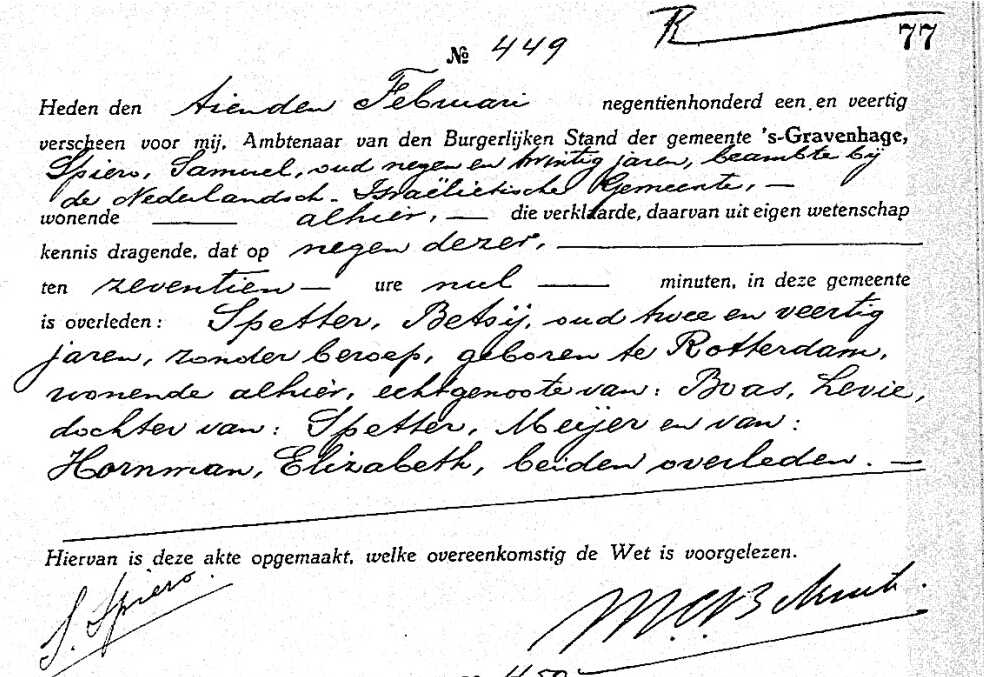 R 77
№ 449
Heden den tienden Februari negentienhonderd een en veertig
verscheen voor mij, Ambtenaar van den Burgerlijken Stand der gemeente 's-Gravenhage,
Spiero, Samuel, oud negen en twintig jaren, beambte bij
de Nederlandsch-Israëlietische Gemeente, —
wonende — alhier, — die verklaarde, daarvan uit eigen wetenschap
kennis dragende, dat op negen dezer, —
ten zeventien — ure nul — minuten, in deze gemeente
is overleden: Spetter, Betsij, oud twee en veertig
jaren, zonder beroep, geboren te Rotterdam,
wonende alhier, echtgenoote van: Boas, Levie,
dochter van: Spetter, Meijer en van:
Hornman, Elizabeth, beiden overleden. —
Hiervan is deze akte opgemaakt, welke overeenkomstig de Wet is voorgelezen.
S. Spiero.
450